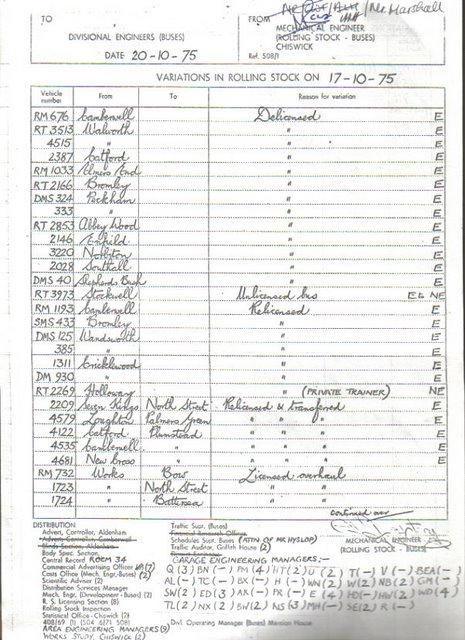 TO
DIVISIONAL ENGINEERS (BUSES)
DATE 20-10-75
Mr Marshall
FROM
MECHANICAL ENGINEER
(ROLLING STOCK - BUSES)
CHISWICK
Ref. 508/1
VARIATIONS IN ROLLING STOCK ON 17-10-75
Vehicle number From To Reason for variation
RM 676 Camberwell Delicensed E
RT 3513 Walworth " E
4515 " " E
2387 Catford " E
RM 1033 Elmers End " E
RT 2166 Bromley " E
DMS 324 Peckham " E
333 " " E
RT 2853 Abbey Wood " E
2146 Enfield " E
3220 Norbiton " E
2028 Southall " E
DMS 40 Shepherds Bush " E
RT 3973 Stockwell Unlicensed bus E to NE
RM 1193 Camberwell Relicensed E
SMS 433 Bromley " E
DMS 125 Wandsworth " E
385 " " E
1311 Cricklewood " E
DM 930 " " E
RT 2269 Holloway " (PRIVATE TRAINER) NE
2209 Seven Kings North Street Relicensed & transferred E
4579 Loughton Palmers Green " " " E
4122 Catford Plumstead " " " E
4535 Camberwell " " " " E
4681 New Cross " " " " E
RM 732 Works Bow Licensed overhaul
1723 " North Street " "
1724 " Battersea " "
continued over
MECHANICAL ENGINEER
(ROLLING STOCK - BUSES)
DISTRIBUTION
Advert. Controller, Aldenham
Body Spec. Section
Central Record ROOM 34
Commercial Advertising Officer (7)
Costs Office (Mech. Engr.-Buses) (2)
Scientific Adviser (2)
Distribution Services Manager
Mech. Engr. (Development - Buses) (2)
R. S. Licensing Section (8)
Rolling Stock Inspection
Statistical Office - Chiswick (2)
408/69 (1) 504 617 508 (2)
AREA ENGINEERING MANAGERS (9)
WORKS STUDY, CHISWICK (2)
Traffic Supt. (Buses)
Financial Research Officer
Schedules Supt. Buses (ATTN OF MR HYSLOP)
Traffic Auditor, Griffith House (2)
GARAGE ENGINEERING MANAGERS :-
Q (3) BN (-) PM (4) NT (2) U (2) T (-) V (-) BEA (-)
AL (-) TC (-) BX (-) H (-) WN (2) W (2) NB (2) GM (-)
SW (2) ED (3) AK (-) PR (-) E (4) HD (-) HW (2) WD (4)
TL (2) NX (2) BW (2) NS (3) MH (-) SE (2) R (-)
Divl. Operating Manager (Buses) Mansion House